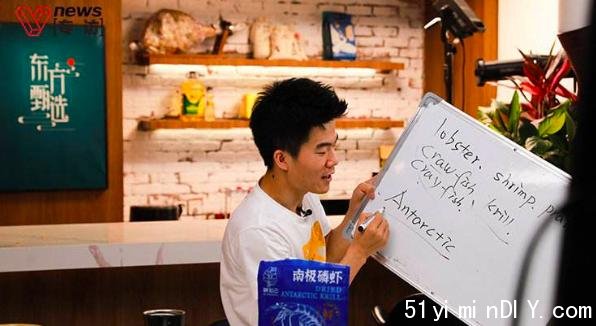 news
[专访]
东方
甄选
lobster、shrimp.
craw-fish、krill.
cray-fish.
Antarctic
南极磷虾
DRIED
ANTARCTIC KRILL
51yiminDIY.com